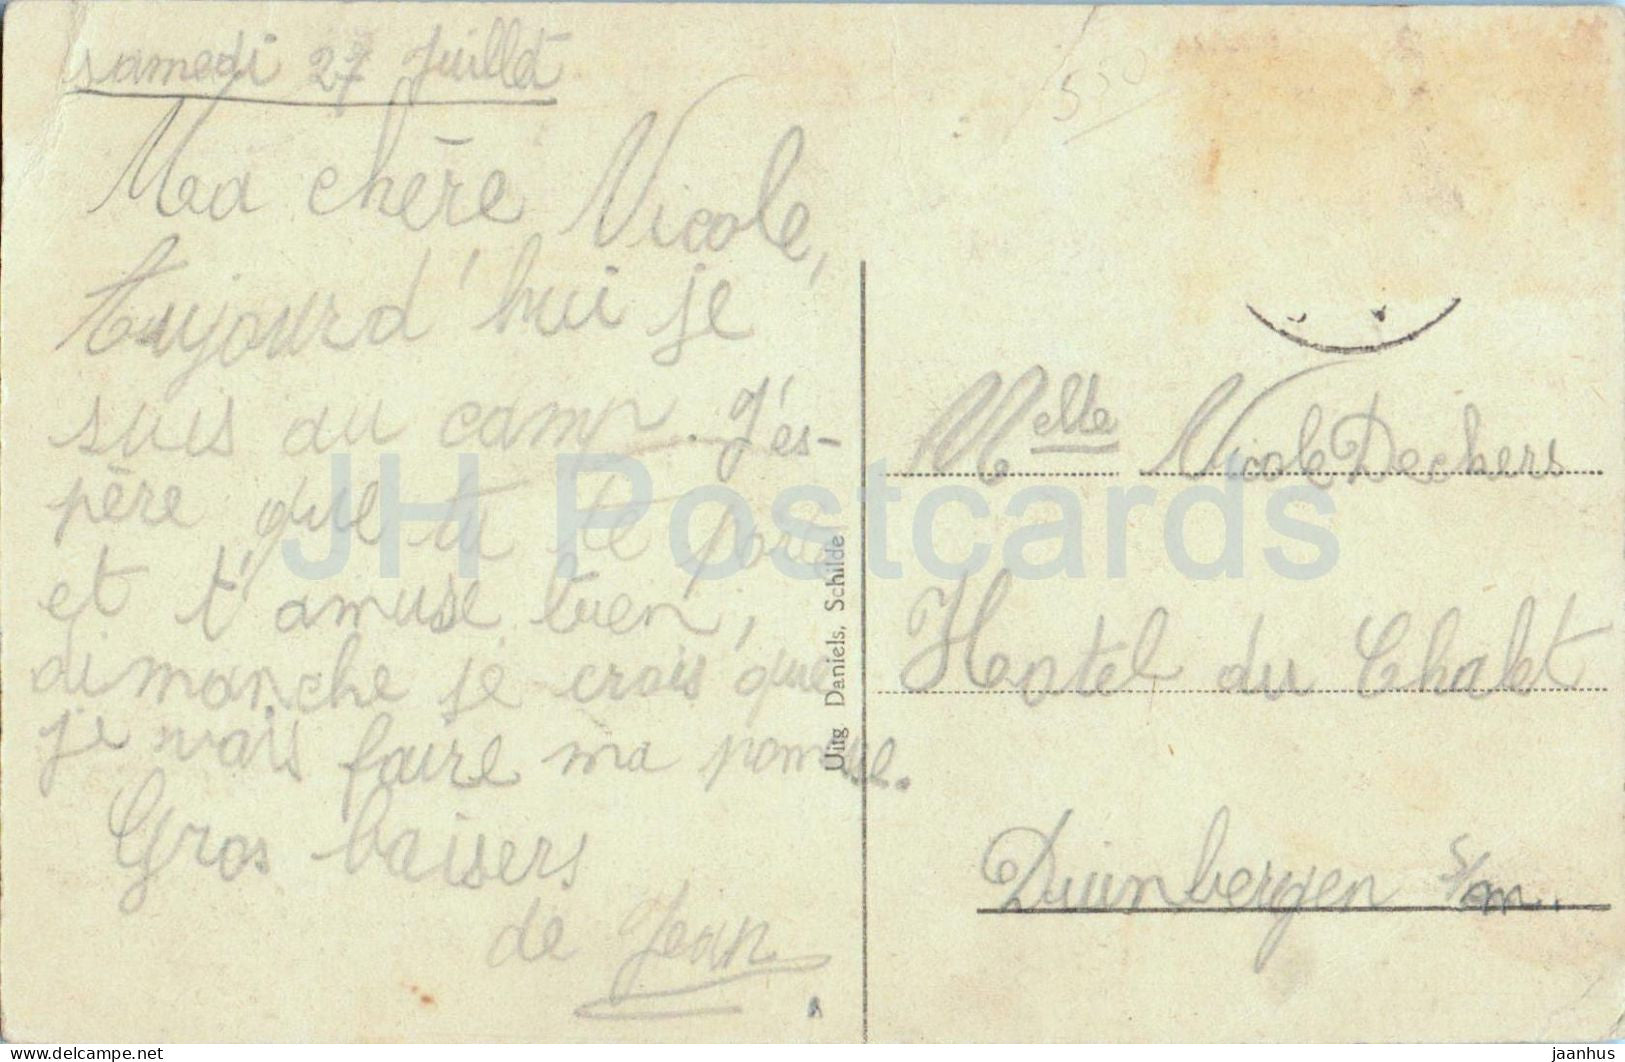 samedi 27 Juillet
Ma chère Nicole,
Aujourd'hui je
suis au camp. J'es-
père que tu te
et t'amuse bien,
dimanche je crois que
je vais faire ma
Gros baisers
de Jean
550
Uitg Daniels, Schilde
Melle Nicole Dechers
Hostel du Chalet
Duinbergen s/m.
JH Postcards
delcampe.net
jaanhus